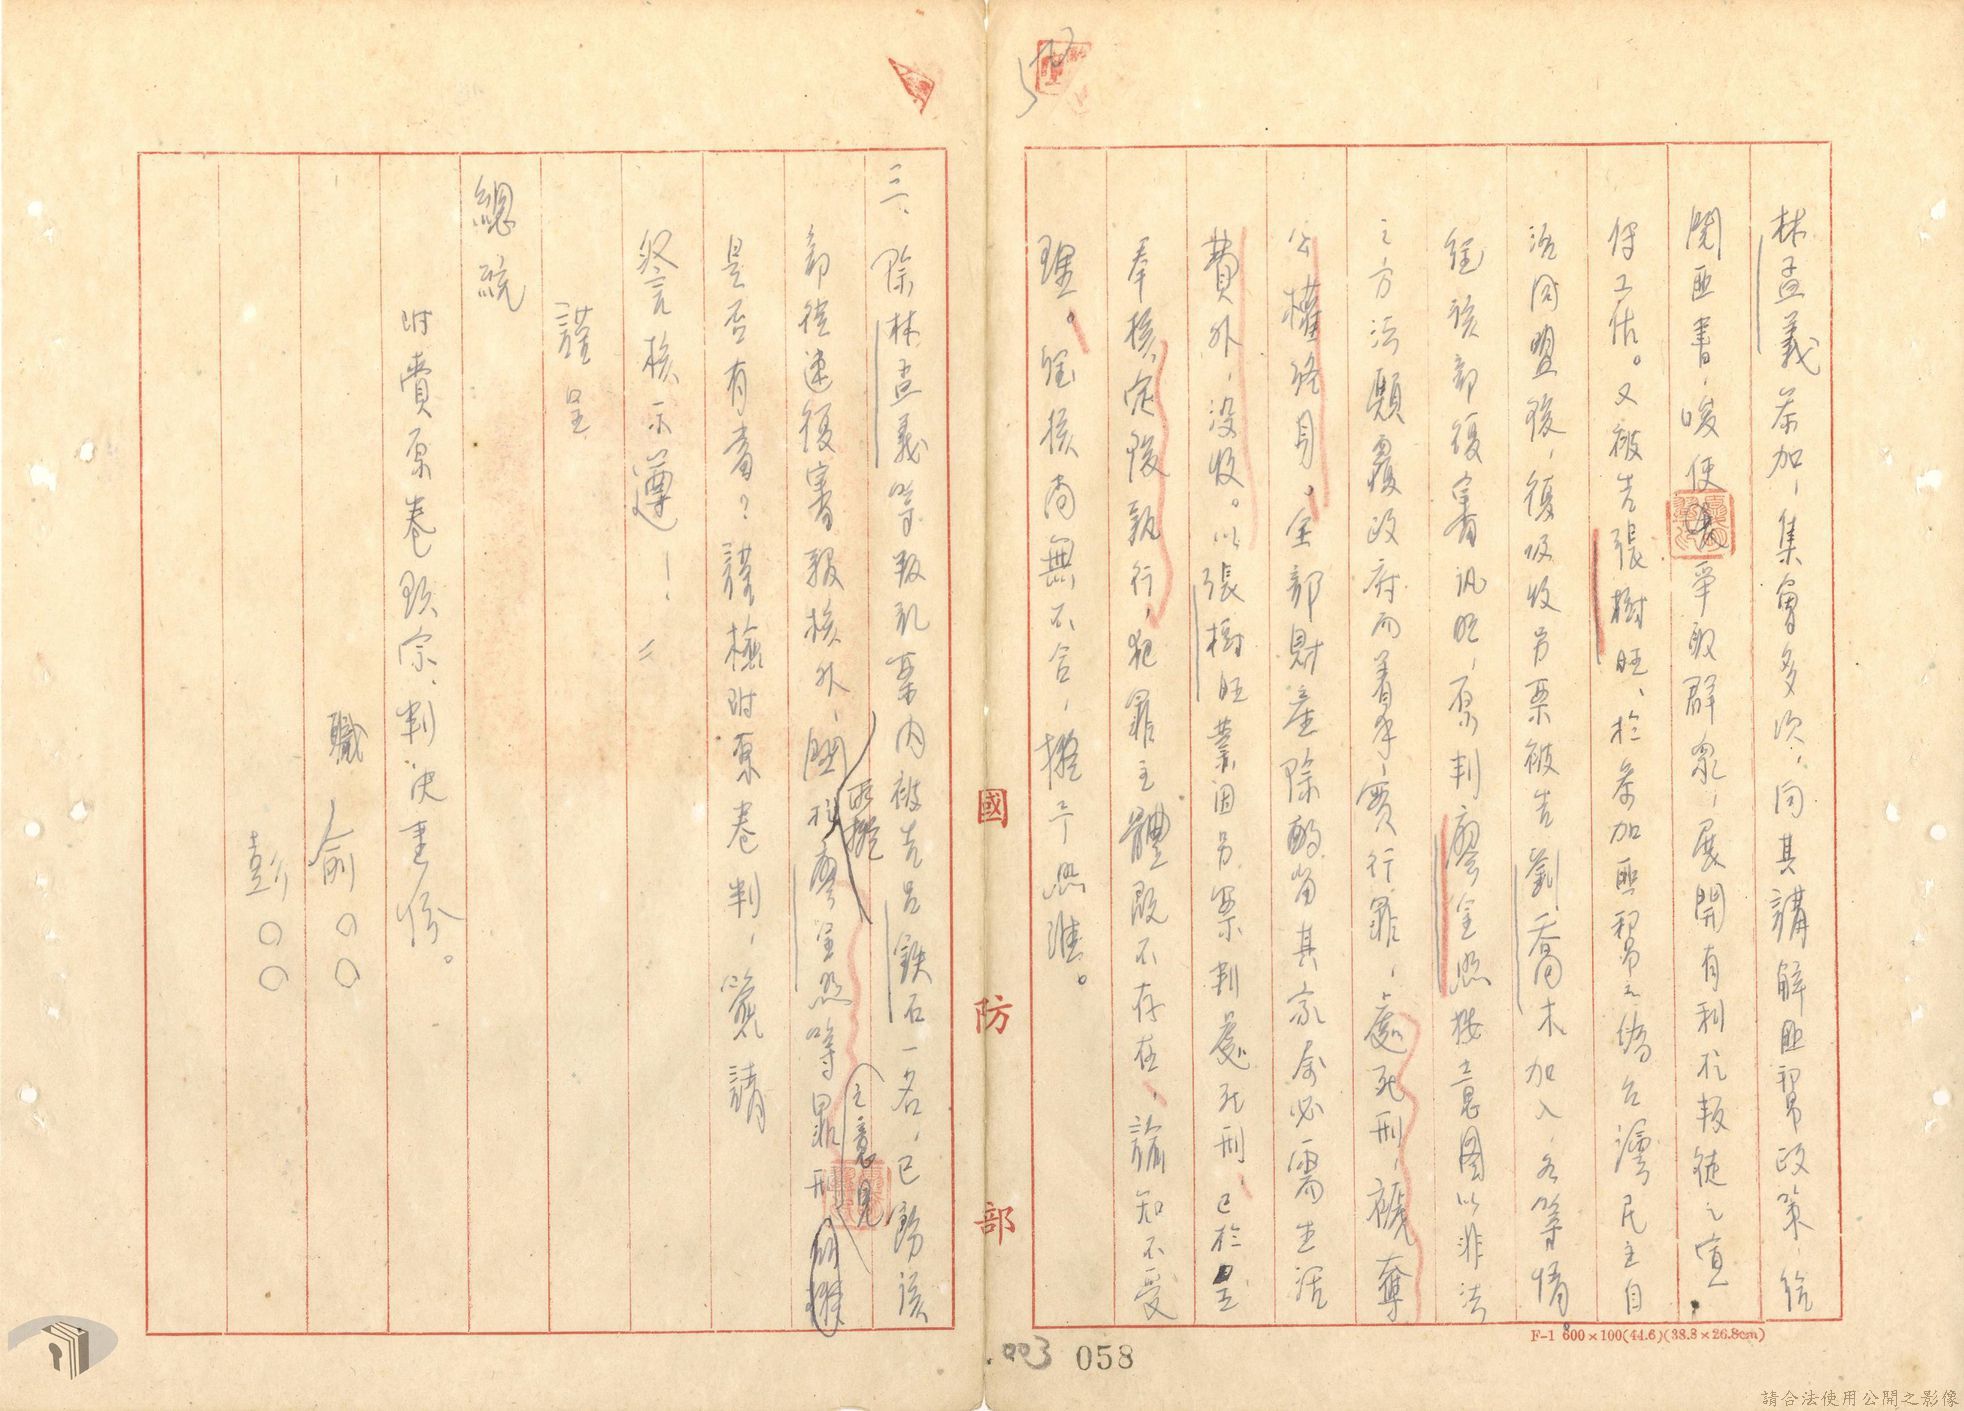 林孟義茶加、集會多次、向其講解匪幫政策、給
閱匪書、唆使爭取群眾、展開有利於叛徒之宣
傳工作。又被告張樹旺、於參加匪幫之偽台灣民主自
治同盟後、復吸收另票被告劉喬木加入、各等情。
經該部復審訊明、原判廖金照按意圖以非法
之方法顛覆政府而着手實行罪、處死刑、褫奪
公權終身。全部財產除酌留其家屬必需生活
費外、沒收。以張樹旺業因另案判處死刑、已於呈
奉核定後執行、犯罪主體既不存在、諭知不受
理。經核尚無不合、擬予照准。
三、除林孟義等叛亂案内被告呂鐵石一名、已飭該
部從速復審報核外、關於廖金照等罪刑所擬
所擬
之意見
是否有當？謹檢附原卷判、簽請
鈞核示遵！
謹呈
總統
附賫原卷玖宗、判決書份。
職 俞〇〇
彭〇〇
國防部
F-1 600×100(44.6)(38.8×26.8cm)
003 058
請合法使用公開之影像